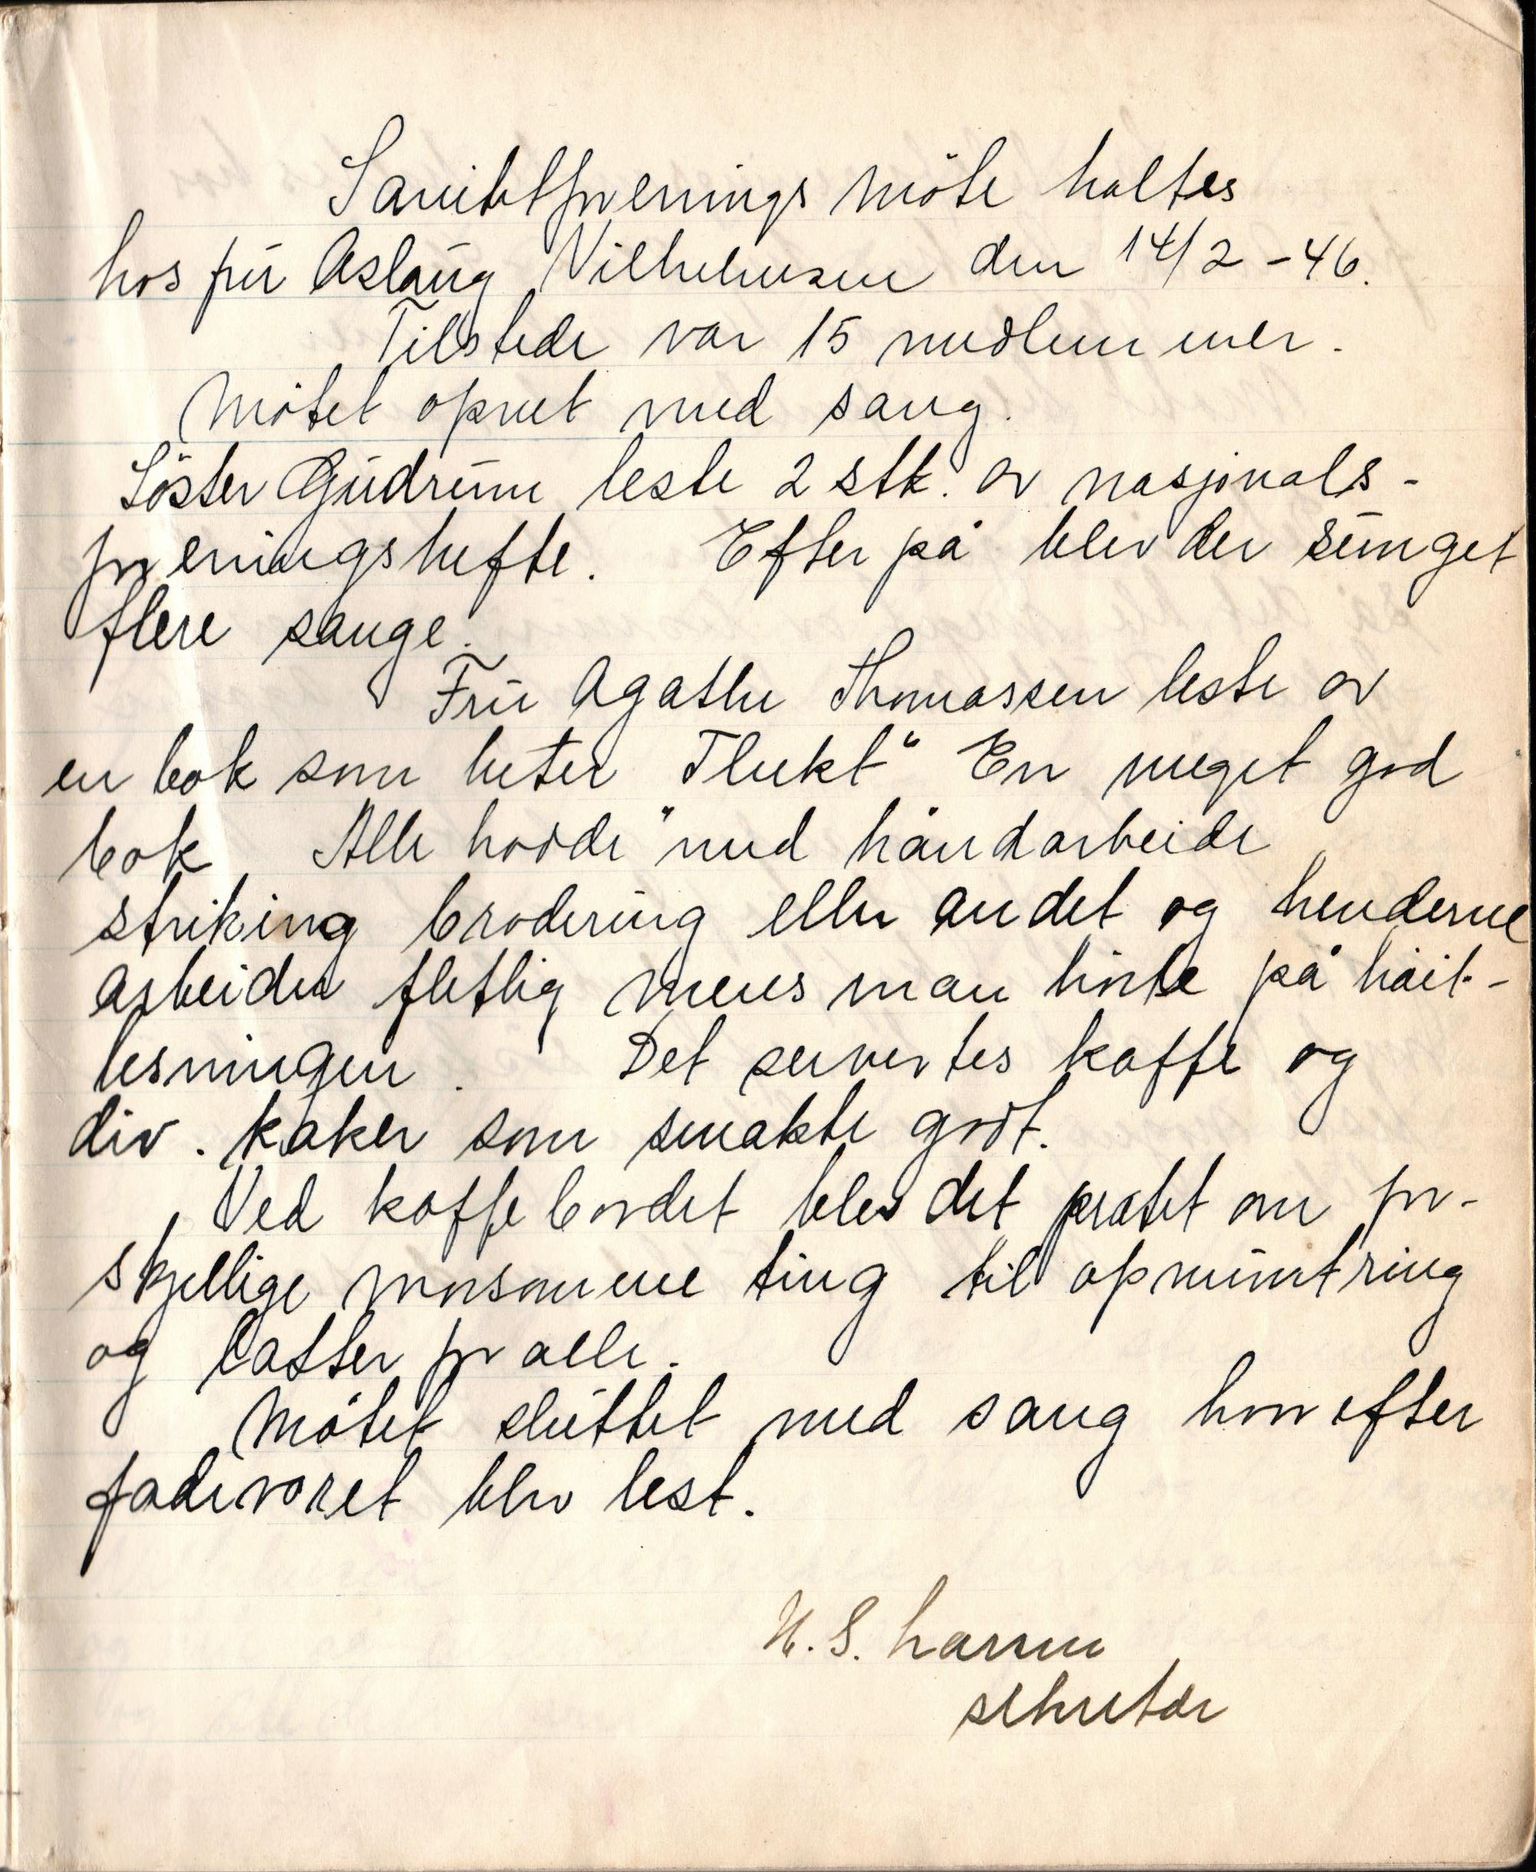 Sanitetforenings Möte holtes
hos frú Aslaúg Vilhelmsen den 14/2 -46.
Tilstede var 15 medlemmer.
Mötet opnet med sang.
Söster Gúdrún leste 2 stk. av nasjonals-
foreningshefte. Efter på blev der súnget
flere sange.
Frú Agathe Thomassen leste av
en bok som heter Flukt" En meget god
bok Alle hadde "med håndarbeide
striking brodering eller andet og henderne
arbeidet flittig mens man hörte på höit-
lesningen. Det servertes kaffe og
div. kaker som smakte godt.
Ved kaffebordet blev det pratet om for-
skjellige morsomme ting til opmúntring
og latter for alle.
Mötet slúttet med sang hvorefter
fadervoret blev lest.
H. S. Larsen
sekretær